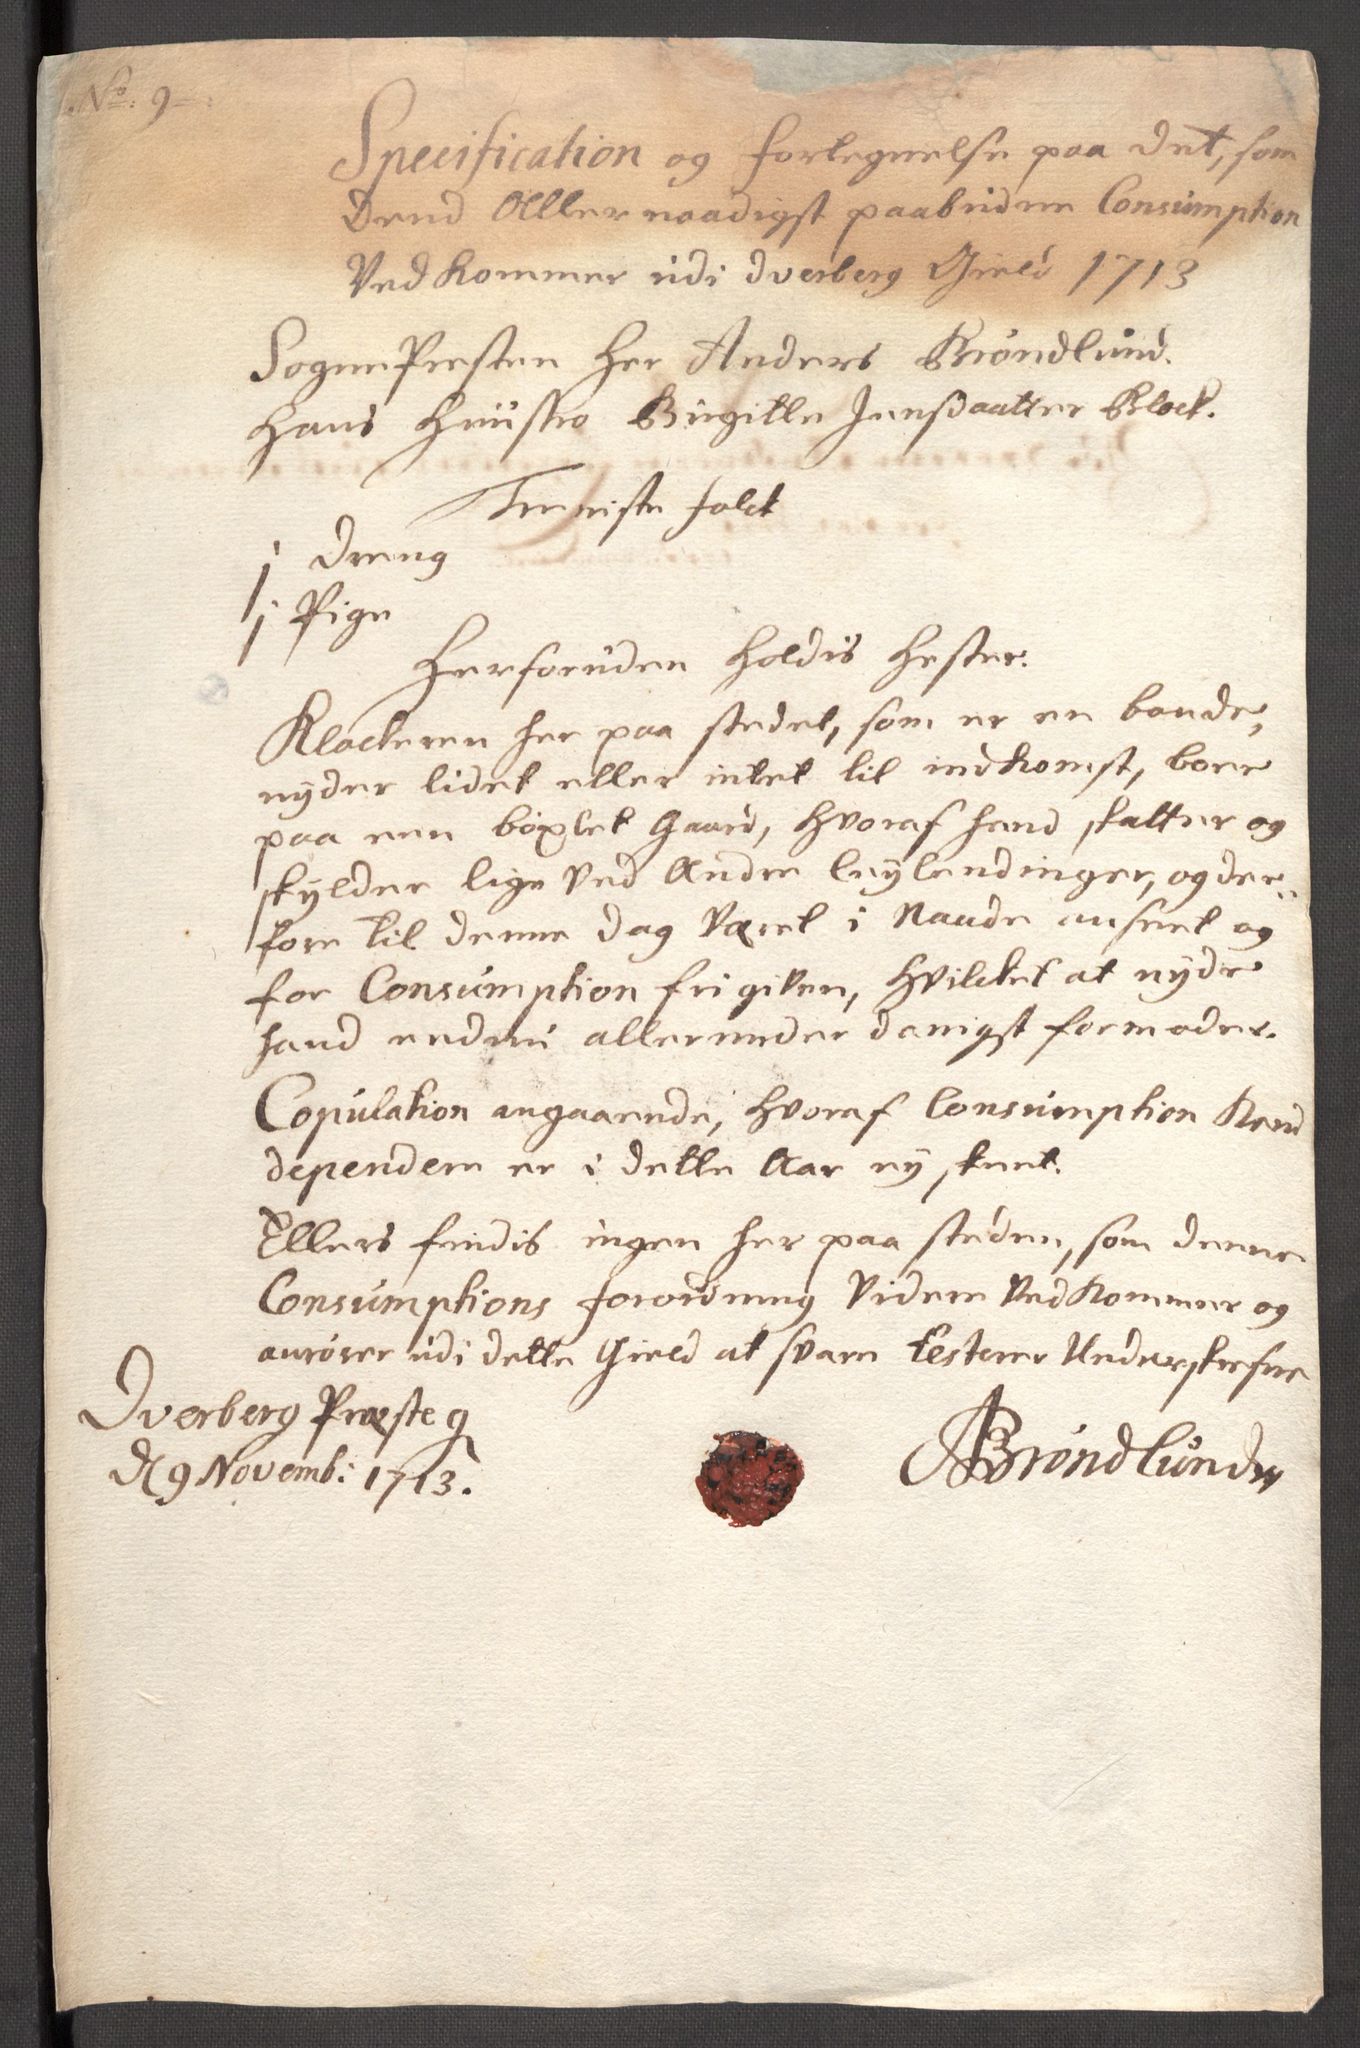 No: 9
Specification og fortegnelse paa det, som
dend Allernaadigst paabudne Consumption
Vedkommer udi dverberg Gield 1713
SognePresten Her Anders Brøndlund.
Hans Hustro Birgitte Jensdaatter Block.
Tieniste folck
1 Dreng
1 Pige
Herforuden holdis hester.
Klockeren her paa stedet, som er en bonde,
nyder lidet eller intet til indkomst, boer
paa een böxlet Gaard, hvoraf hand skatter og
skylder lige ved Andre leylendinger, og der-
fore til denne dag været i Naade anseet og
for Consumption frigiven, hvilcket at nyde
hand endnu allerunderdanigst formoder.
Copulation angaaende, hvoraf Consumption Kand
dependere er i dette Aar ey skeet.
Ellers findis ingen her paa steden, som denne
Consumptions forordning Videre VedKommer og
anrører udi dette Gield at svare testerer Underskrefne
Dverberg Præsteg
D 9 Novemb: 1713.
ABrøndlund